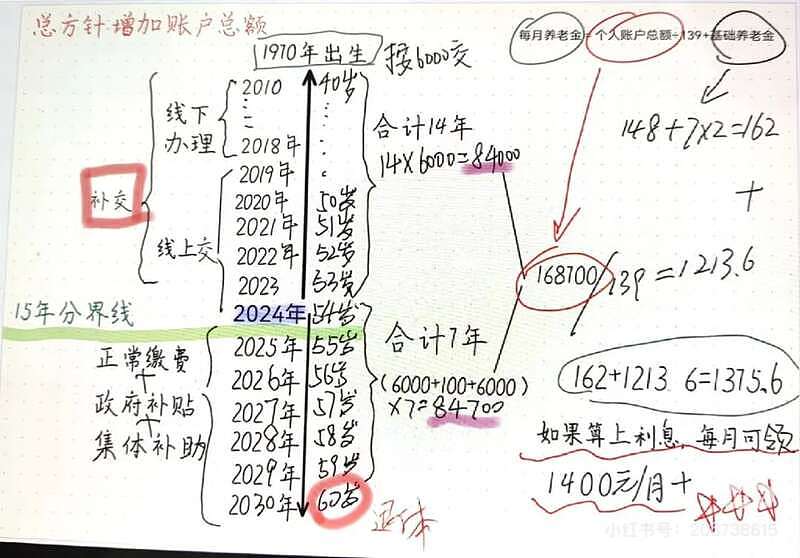 总方针:增加账户总额
每月养老金=个人账户总额÷139+基础养老金
1970年出生
按6000交
2010 40岁
2018年
2019年
2020年 50岁
2021年 51岁
2022年 52岁
2023 53岁
2024年 54岁
2025年 55岁
2026年 56岁
2027年 57岁
2028年 58岁
2029年 59岁
2030年 60岁
退休
线下
办理
补交
线上交
15年分界线
正常缴费
+
政府补贴
+
集体补助
合计14年
14×6000=84000
合计7年
(6000+100+6000)
×7=84700
148+7×2=162
+
168700/139=1213.6
162+1213.6=1375.6
如果算上利息,每月可领
1400元/月+
小红书号: